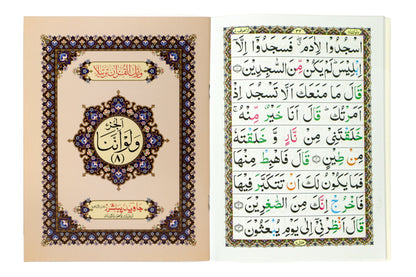 ورتل القرآن ترتيلا
الجزء
ولو أننا
(٨)
اسْجُدُوا لِآدَمَ ۖ فَسَجَدُوا إِلَّا
إِبْلِيسَ لَمْ يَكُنْ مِّنَ السَّاجِدِينَ
قَالَ مَا مَنَعَكَ أَلَّا تَسْجُدَ إِذْ
أَمَرْتُكَ ۖ قَالَ أَنَا خَيْرٌ مِّنْهُ ۚ
خَلَقْتَنِي مِنْ نَّارٍ وَّ خَلَقْتَهُ
مِنْ طِينٍ قَالَ فَاهْبِطْ مِنْهَا
فَمَا يَكُونُ لَكَ أَنْ تَتَكَبَّرَ فِيهَا
فَاخْرُجْ إِنَّكَ مِنَ الصَّاغِرِينَ
قَالَ أَنْظِرْنِي إِلَى يَوْمِ يُبْعَثُونَ